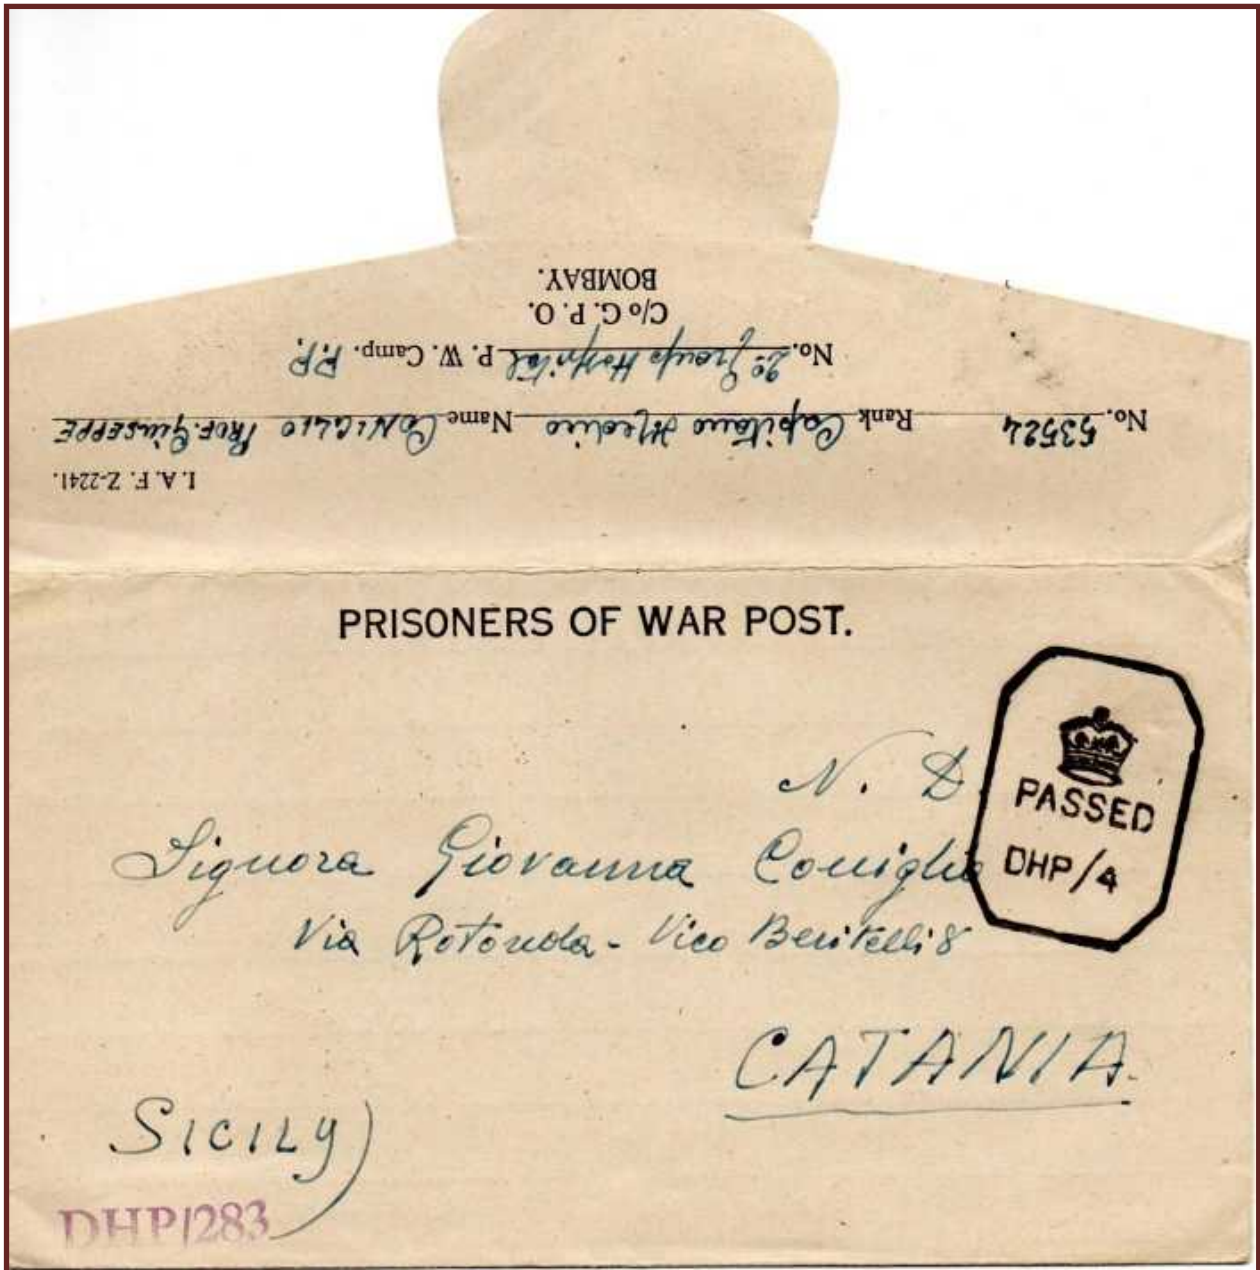 I. A. F. Z-2241.
No. 53524 Rank Capitano Medico Name CONIGLIO PROF. GIUSEPPE
No. 2° Group Hospital P. W. Camp. P.P.
C/o G. P. O.
BOMBAY.
PRISONERS OF WAR POST.
PASSED
DHP/4
N. D.
Signora Giovanna Coniglio
Via Rotonda - Vico Benitelli 8
CATANIA
SICILY)
DHP/283